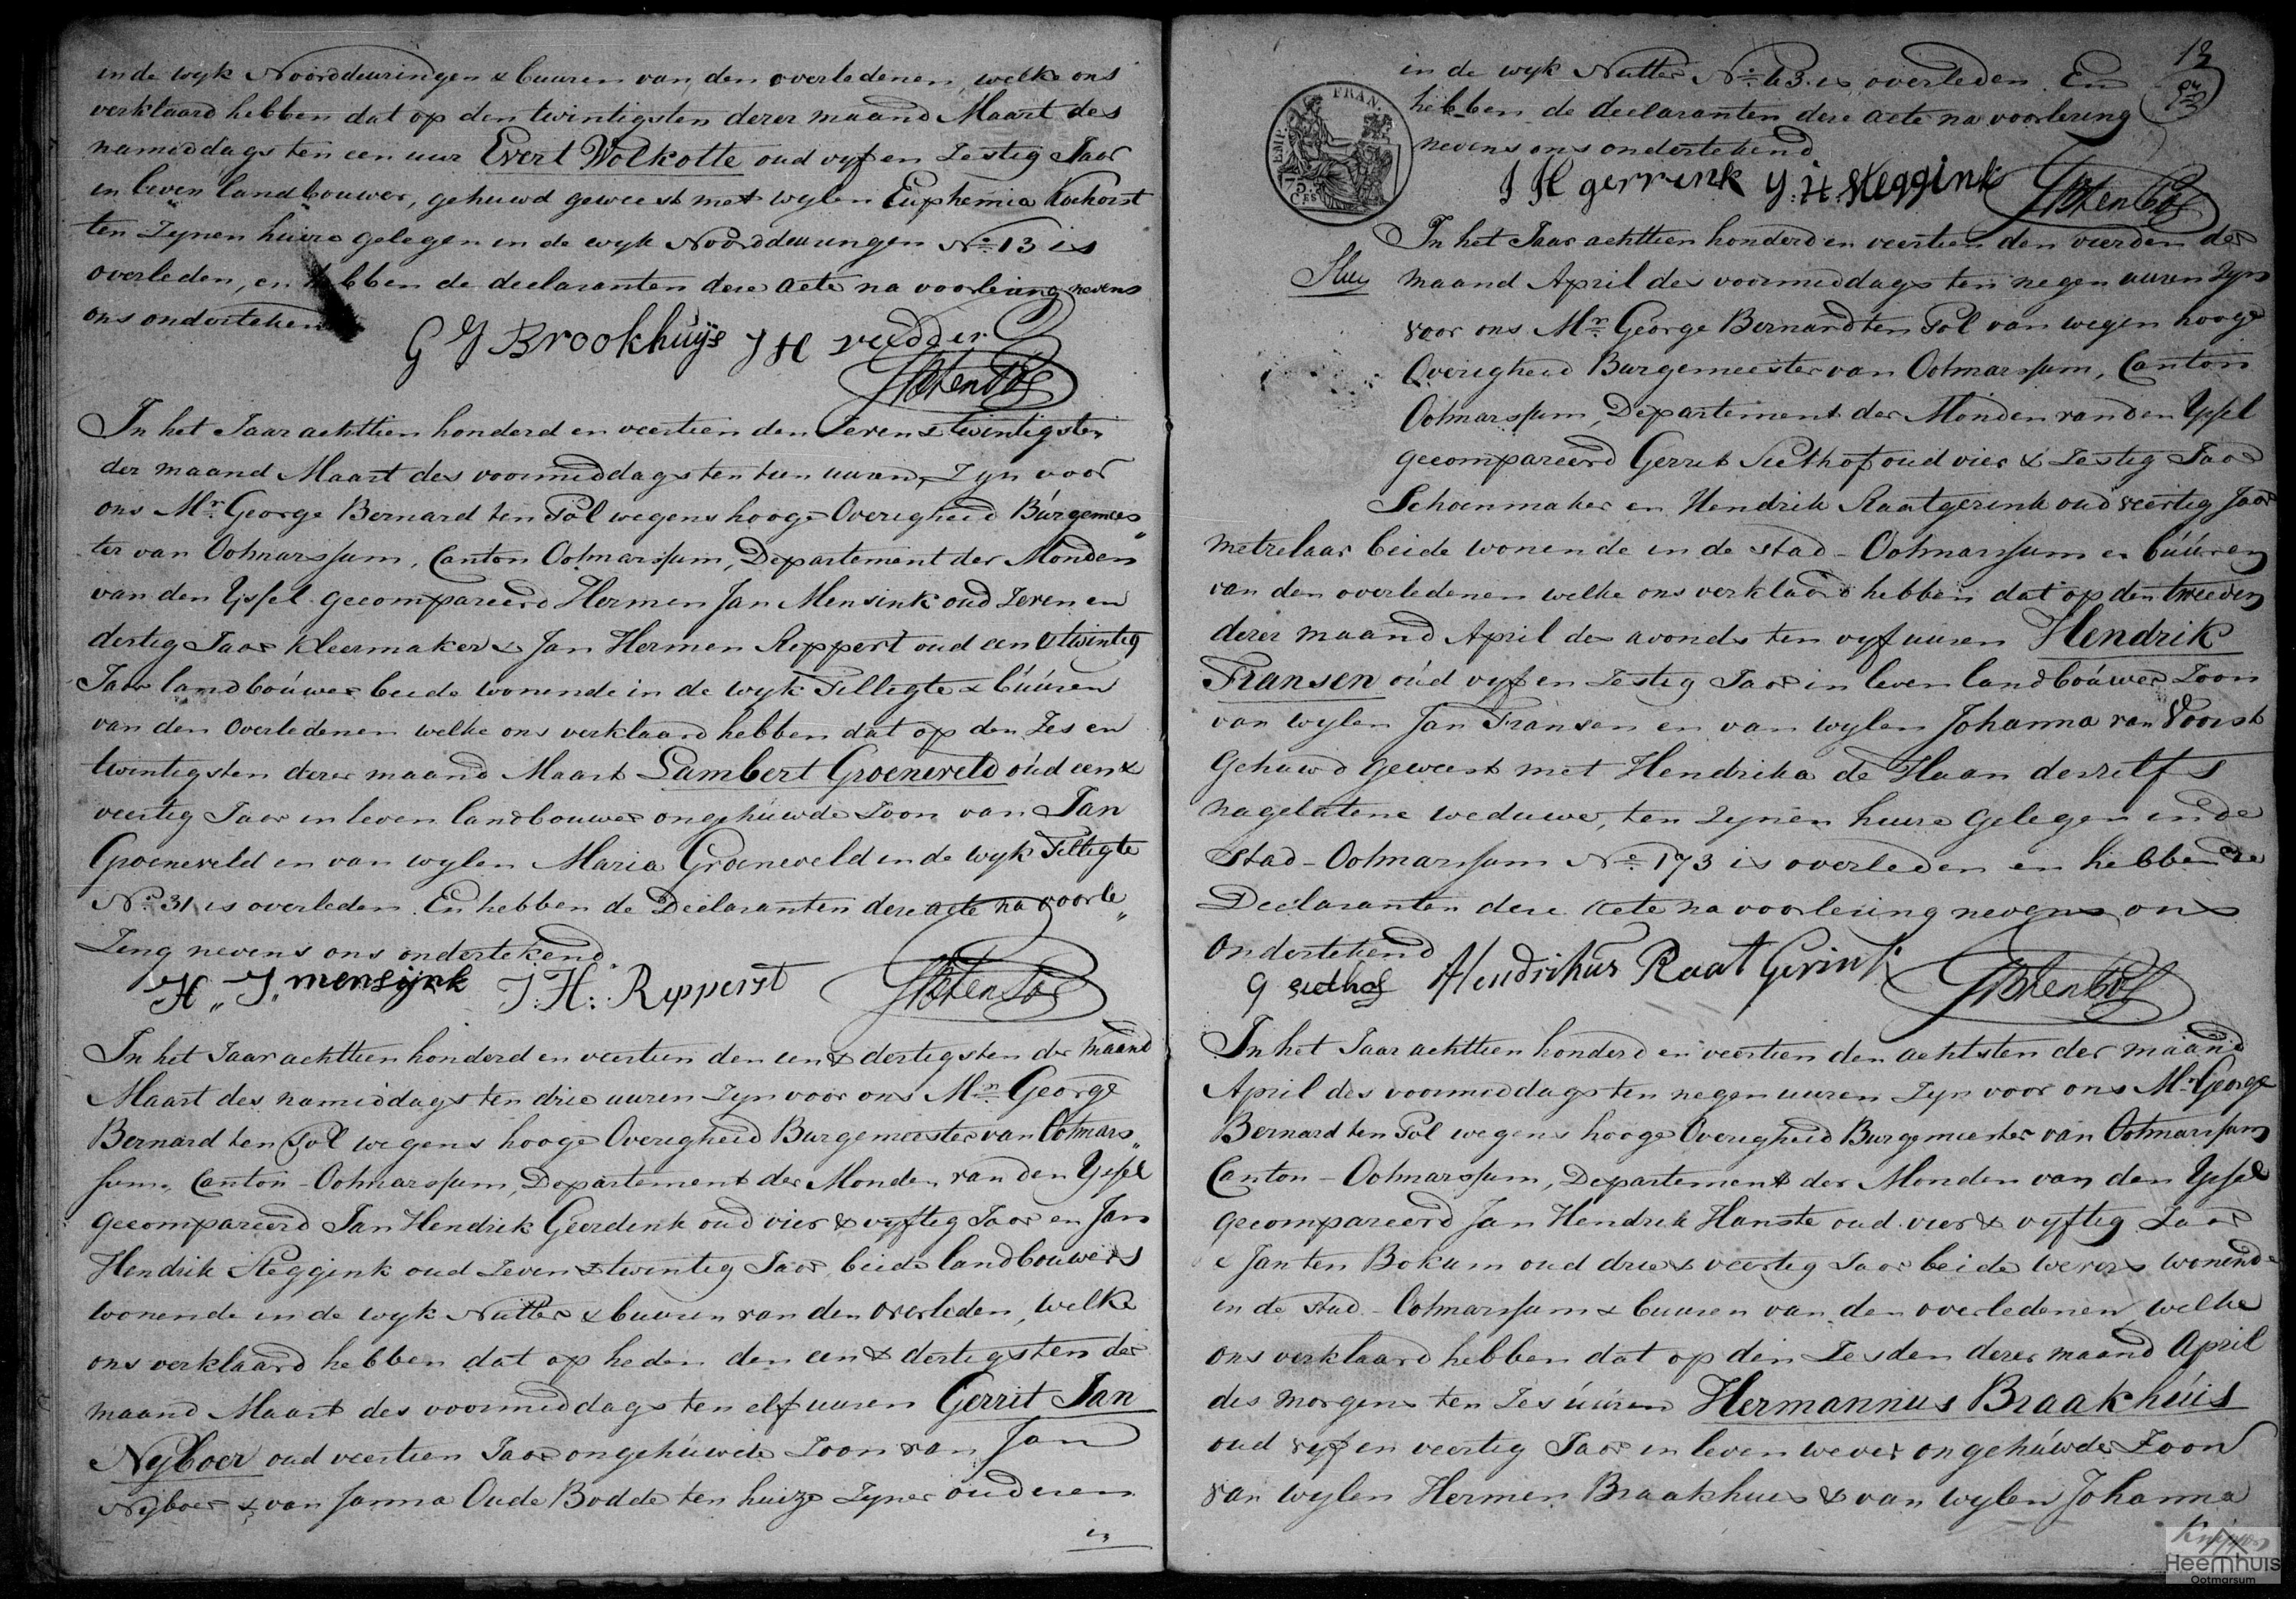 in de wyk Noorddeuringen & buuren van den overledenen, welke ons
verklaard hebben dat op den twintigsten derer maand Maart des
namiddags ten een uur Evert Volkotte oud vyf en Zestig Jaar
in leven landbouwer, gehuwd geweest met wylen Euphemia Kochorst
ten Zynen huize gelegen in de wyk Noorddeuringen No. 13 is
overleden, en hebben de declaranten deze acte na voorlezing nevens
ons ondertekend
G J Brookhuijs J H vedder GBtenPol
In het Jaar achttien honderd en veertien den Zeven & twintigsten
der maand Maart des voormiddags ten tien uuren, Zyn voor
ons Mr. George Bernard ten Pol wegens hooge Overigheid Burgemees„
ter van Ootmarssum, Canton Ootmarssum, Departement der Monden
van den Yssel gecompareerd Hermen Jan Mensink oud Zeven en
dertig Jaar kleermaker & Jan Hermen Reppert oud een & twintig
Jaar landbouwer beide wonende in de wyk Tilligte & buuren
van den Overledenen welke ons verklaard hebben dat op den Zes en
twintigsten derer maand Maart Lambert Groeneveld oud een &
veertig Jaar in leven landbouwer ongehuwde Zoon van Jan
Groeneveld en van wylen Maria Groeneveld in de wyk Tilligte
No. 31 is overleden. En hebben de Declaranten deze acte na voorle„
Zing nevens ons ondertekend.
H„ J„ mensijnk J: H: Repperst GBtenPol
In het Jaar achttien honderd en veertien den een & dertigsten der maand
Maart des namiddags ten drie uuren Zyn voor ons Mr. George
Bernard ten Pol wegens hooge Overigheid Burgemeester van Ootmars„
sum, Canton - Ootmarssum, Departement der Monden van den Yssel
gecompareerd Jan Hendrik Geerdink oud vier & vyftig Jaar en Jan
Hendrik Steggink oud Zeven & twintig Jaar, beide landbouwers
wonende in de wyk Nutter & buuren van den overleden, welke
ons verklaard hebben dat op heden den een & dertigsten der
maand Maart des voormiddags ten elf uuren Gerrit Jan
Nyboer oud veertien Jaar ongehuwde Zoon van Jan
Nyboer & van Janna Oude Bodde ten huize Zyner ouderen
in
13
in de wyk Nutter No. 63 is overleden. En
hebben de declaranten deze acte na voorlezing
nevens ons ondertekend
J H gerrink J: H: Steggink GBtenPol
EMP. FRAN.
75 CES
In het Jaar achttien honderd en veertien den vierden der
maand April des voormiddags ten negen uuren Zyn
voor ons Mr. George Bernard ten Pol van wegen hooge
Overigheid Burgemeester van Ootmarssum, Canton
Ootmarssum, Departement der Monden van den Yssel
gecompareerd Gerrit Siethof oud vier & Zestig Jaar
Schoenmaker en Hendrik Raatgerink oud veertig Jaar
metzelaar beide wonende in de stad - Ootmarssum en buuren
van den overledenen welke ons verklaard hebben dat op den tweeden
derer maand April des avonds ten vyf uuren Hendrik
Fransen oud vyf en Zestig Jaar in leven landbouwer Zoon
van wylen Jan Fransen en van wylen Johanna van Voorst
gehuwd geweest met Hendrika de Haan deszelfs
nagelatene weduwe, ten Zynen huize gelegen in de
stad - Ootmarssum No. 173 is overleden en hebben de
Declaranten deze acte na voorlezing nevens ons
ondertekend
G siedhof Hendrikus Raat Gerink GBtenPol
In het Jaar achttien honderd en veertien den achtsten der maand
April des voormiddags ten negen uuren Zyn voor ons Mr. George
Bernard ten Pol wegens hooge Overigheid Burgemeester van Ootmarssum
Canton - Ootmarssum, Departement der Monden van den Yssel
gecompareerd Jan Hendrik Hanste oud vier & vyftig Jaar
& Jan ten Bokum oud drie & veertig Jaar beide wevers wonende
in de stad - Ootmarssum & buuren van den overledenen, welke
ons verklaard hebben dat op den Zesden derer maand April
des morgens ten Zes uuren Hermannus Braakhuis
oud vyf en veertig Jaar in leven wever ongehuwde Zoon
van wylen Hermen Braakhuis & van wylen Johanna
Heemhuis
Ootmarsum